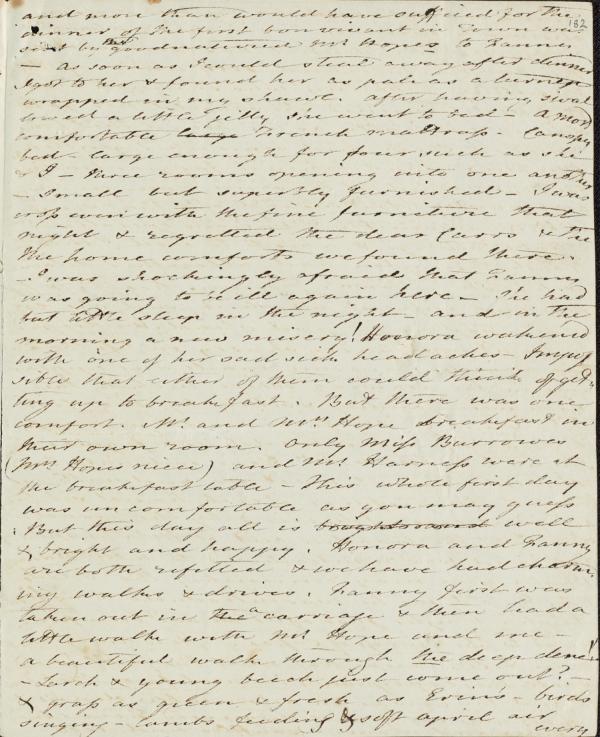 182
and more than would have sufficed for the
dinner of the first bonvivant in Town was
sent by that goodnatured Mr Hopes to Fanny
- As soon as I could steal away after dinner
I got to her & found her as pale as a turnip
wrapped in my shawl. After having swal
lowed a little jelly she went to bed - A most
comfortable large French mattrass - Canopy
bed - large enough for four such as she
& I - three rooms opening into one another
- Small but superbly furnished - I was
cross even with the fine furniture that
night & regretted the dear Carrs & the
the home comforts we found there.
- I was shockingly afraid that Fanny
was going to be ill again here - She had
but little sleep in the night - and in the
morning a new misery! Honora wakened
with one of her sad sick headaches - Impos
sible that either of them could think of get-
ting up to breakfast. But there was one
comfort. Mr. and Mrs Hope breakfast in
their own room. Only Miss Burrowes
(Mrs Hopes niece) and Mr Harness were at
the breakfast table - This whole first day
was uncomfortable as you may guess
But this day all is brought round well
& bright and happy. Honora and Fanny
are both refitted & we have had charm
ing walks & drives. Fanny first was
taken out in the a carriage & then had a
little walk with Mr Hope and me -
a beautiful walk through the deep dene!!
- Larch & young beech just come out! -
& grass as green & fresh as Erin's - birds
singing - lambs feeding & soft april air
every